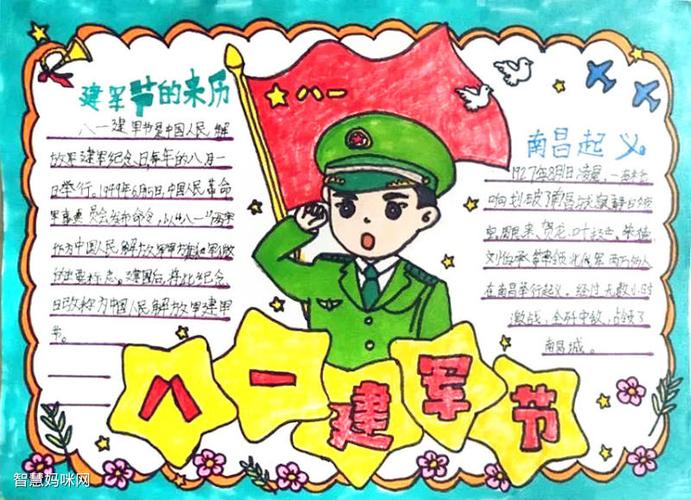 建军节的来历
八一建军节是中国人民解
放军建军纪念日,每年的八月一
日举行。1949年6月15日,中国人民革命
军事委员会发布命令,以"八一"两字
作为中国人民解放军军旗和军徽
的主要标志。建国后,将此纪念
日改称为中国人民解放军建军
节。
八一
南昌起义
1927年8月1日凌晨,一声
响划破南昌城寂静的夜
空,周恩来、贺龙、叶挺、朱德
刘伯承等率领北伐军两万
在南昌举行起义。经过小时
激战,全歼守敌,占领了
南昌城。
八一建军节
智慧妈咪网